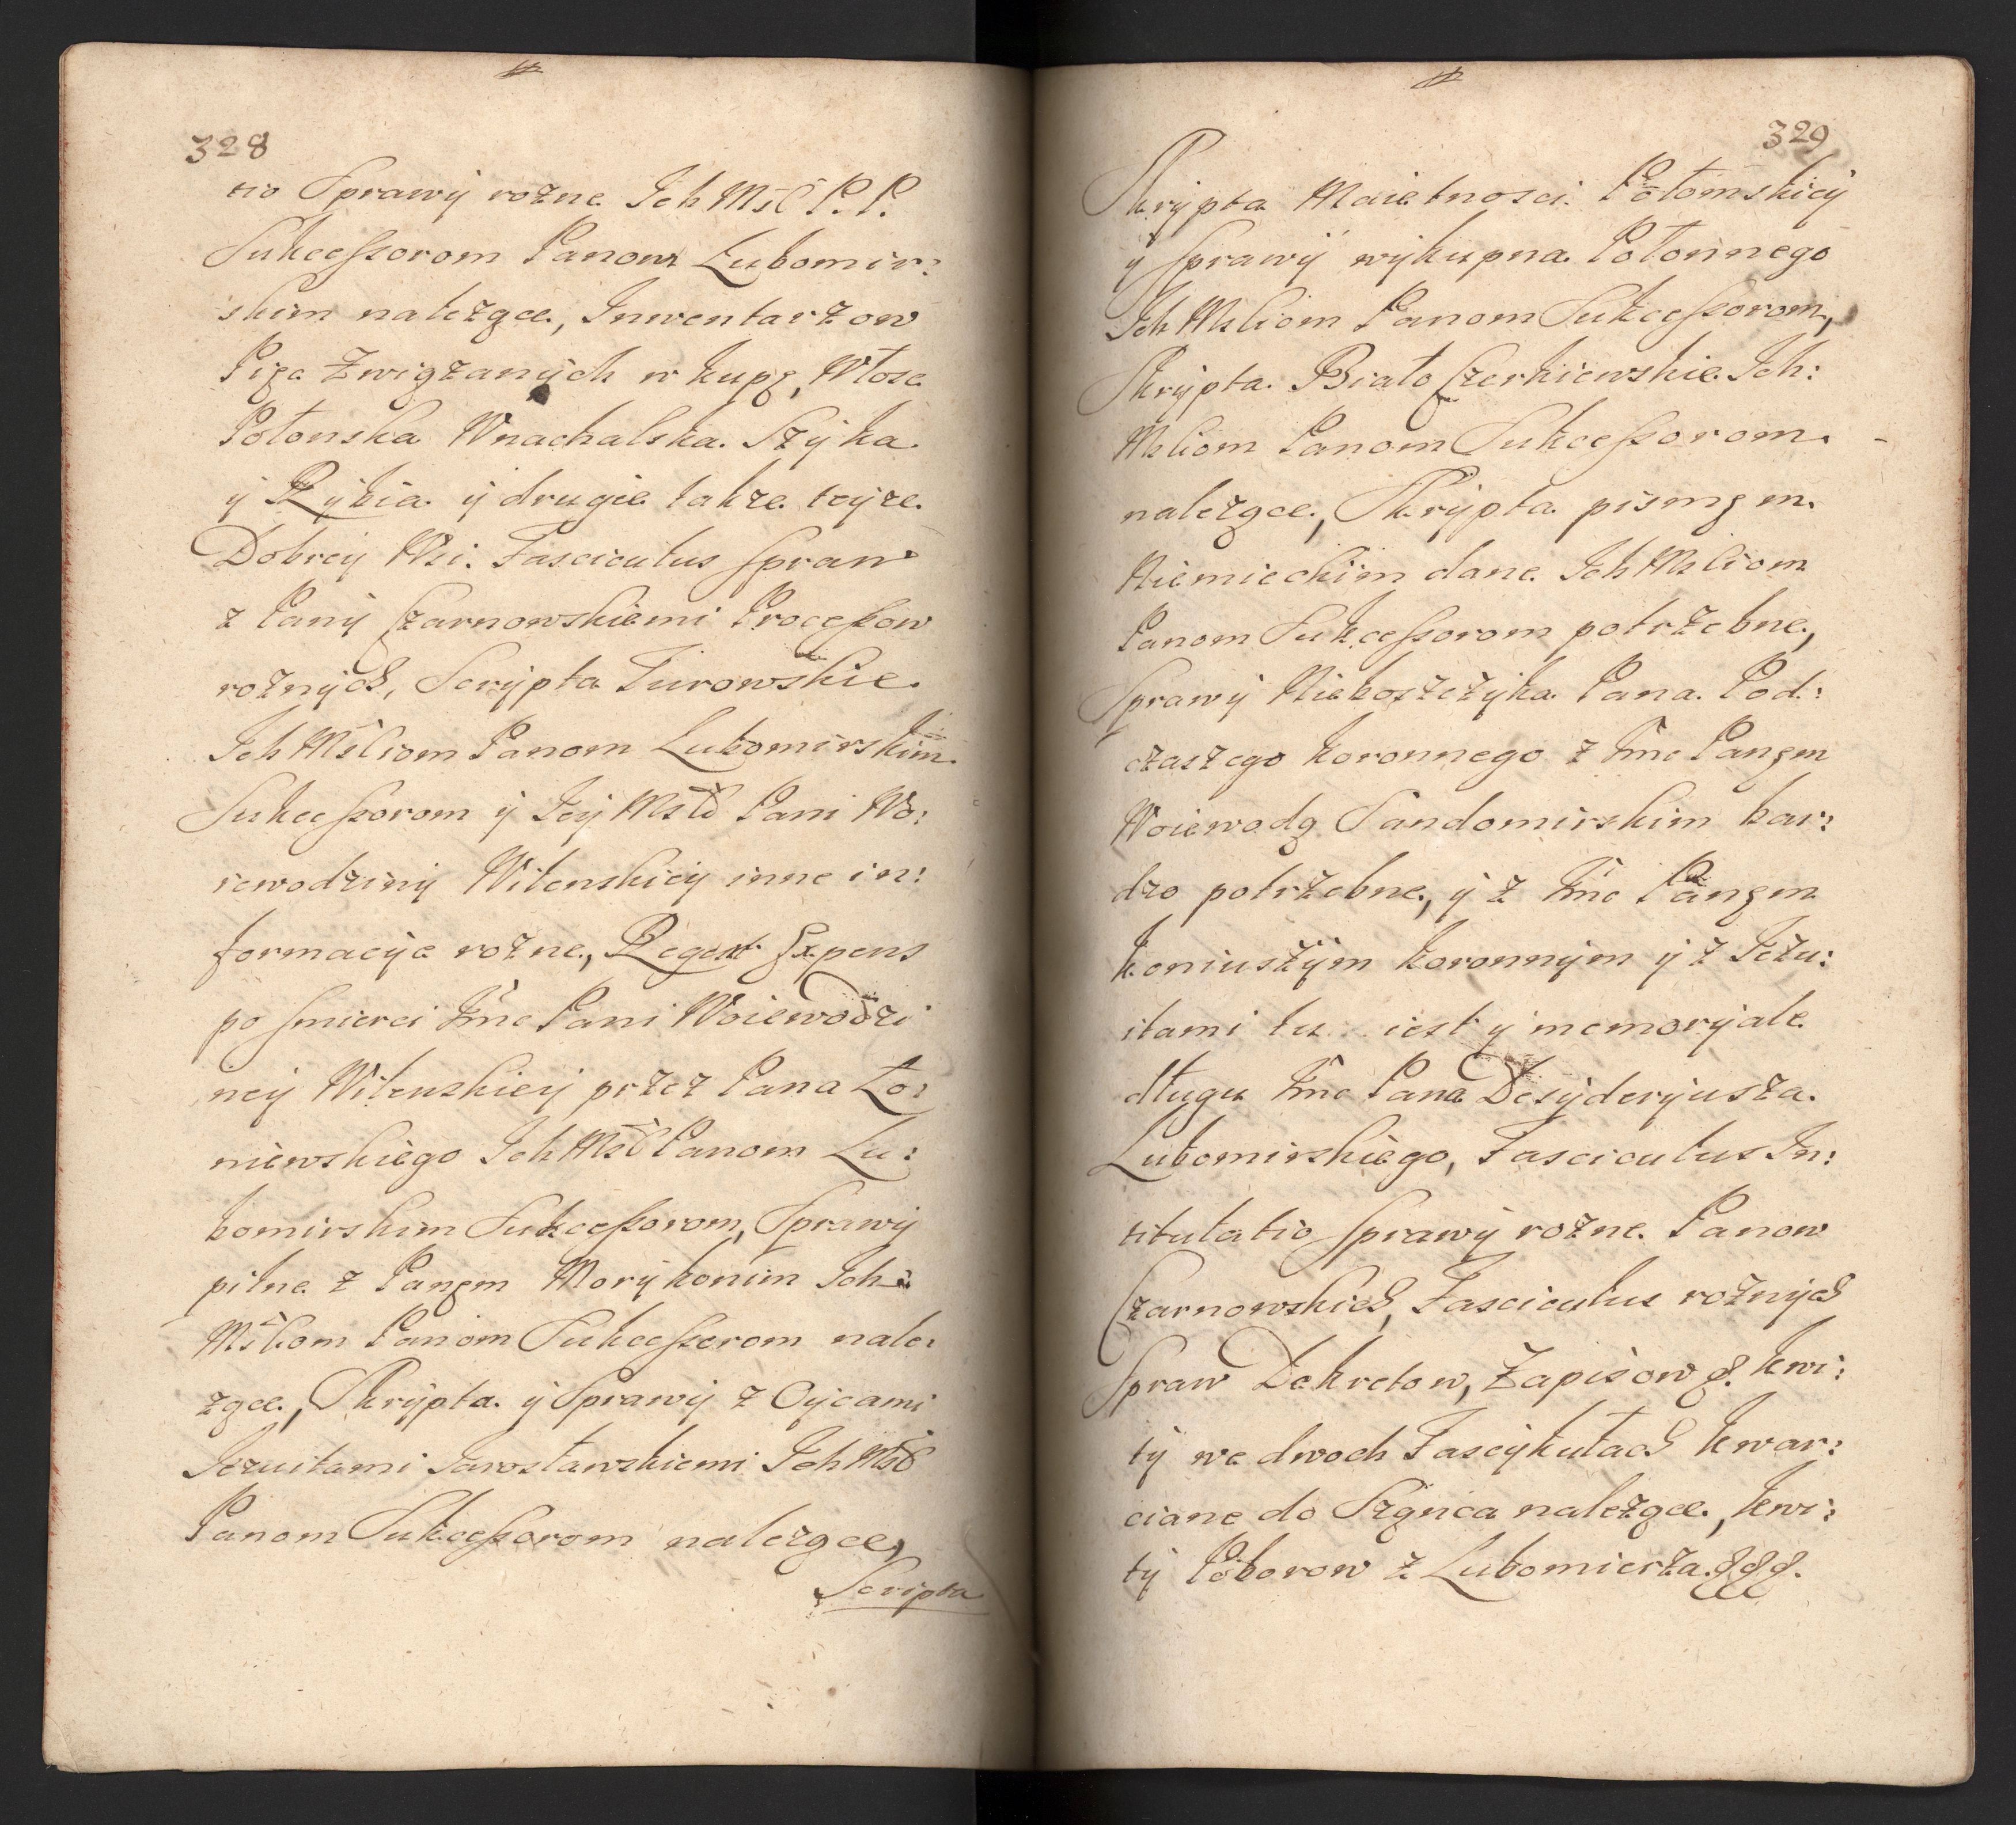 328
tio Sprawÿ rożne Ich Mść P.P.
Sukceszorom Panom Lubomir:
skim należące, Inwentarzow
Pięc Związanÿch w kupę, Włosc
Połonska Wnachalska. Szÿka
ÿ Rÿbia ÿ drugie także teÿże
Dobreÿ Wsi. Fasciculus Spraw
z Panÿ Czarnowskiemi Proceszow
rożnÿch, Scrÿpta Turowskie
Ich Mściom Panom Lubomirskim
Sukceszorom ÿ Jeÿ Mść Pani Wo:
iewodzinÿ Wilenskieÿ inne in:
formacÿe rożne, Regestr Expens
po smierci Jmc Pani Woiewodzi
neÿ Wilenskieÿ przez Pana Ło:
niewskiego Ich Mść Panom Lu:
bomirskim Sukceszorom, Sprawÿ
pilne z Panęm Morÿkonim Ich
Mściom Panom Sukceszorom nale:
żące, Skrÿpta ÿ Sprawÿ z Oÿcami
Jezuitami Jarosławskiemi Ich Mść
Panom Sukceszorom należące,
Scripta
329
Skrÿpta Maietnosci Połomskieÿ
ÿ Sprawÿ wÿkupna Połonnego
Ich Mściom Panom Sukceszorom,
Skrÿpta Biało Czerkiewskie Ich:
Mściom Panom Sukceszorom
należące, Skrÿpta pismęm
Niemieckiim dane Ich Mściom
Panom Sukceszorom potrzebne,
Sprawÿ Nieboszczÿka Pana Pod:
czaszego koronnego z Jmc Panęm
Woiewodą Sandomirskim bar:
dzo potrzebne, ÿ z Jmc Panęm
koniuszÿm koronnÿm ÿ z Jezu:
itami tu iest ÿ memorÿale
długu Jmc Pana Desÿderÿusza
Lubomirskiego, Fasciculus In:
titulatio Sprawÿ rożne Panow
Czarnowskich, Fasciculus rożnÿch
Spraw Dekretow, Zapisow &. kwi:
tÿ we dwoch Fascÿkułach kwar:
ciane do Sząńca należące, kwi:
tÿ Poborow z Lubomierza. &&&.